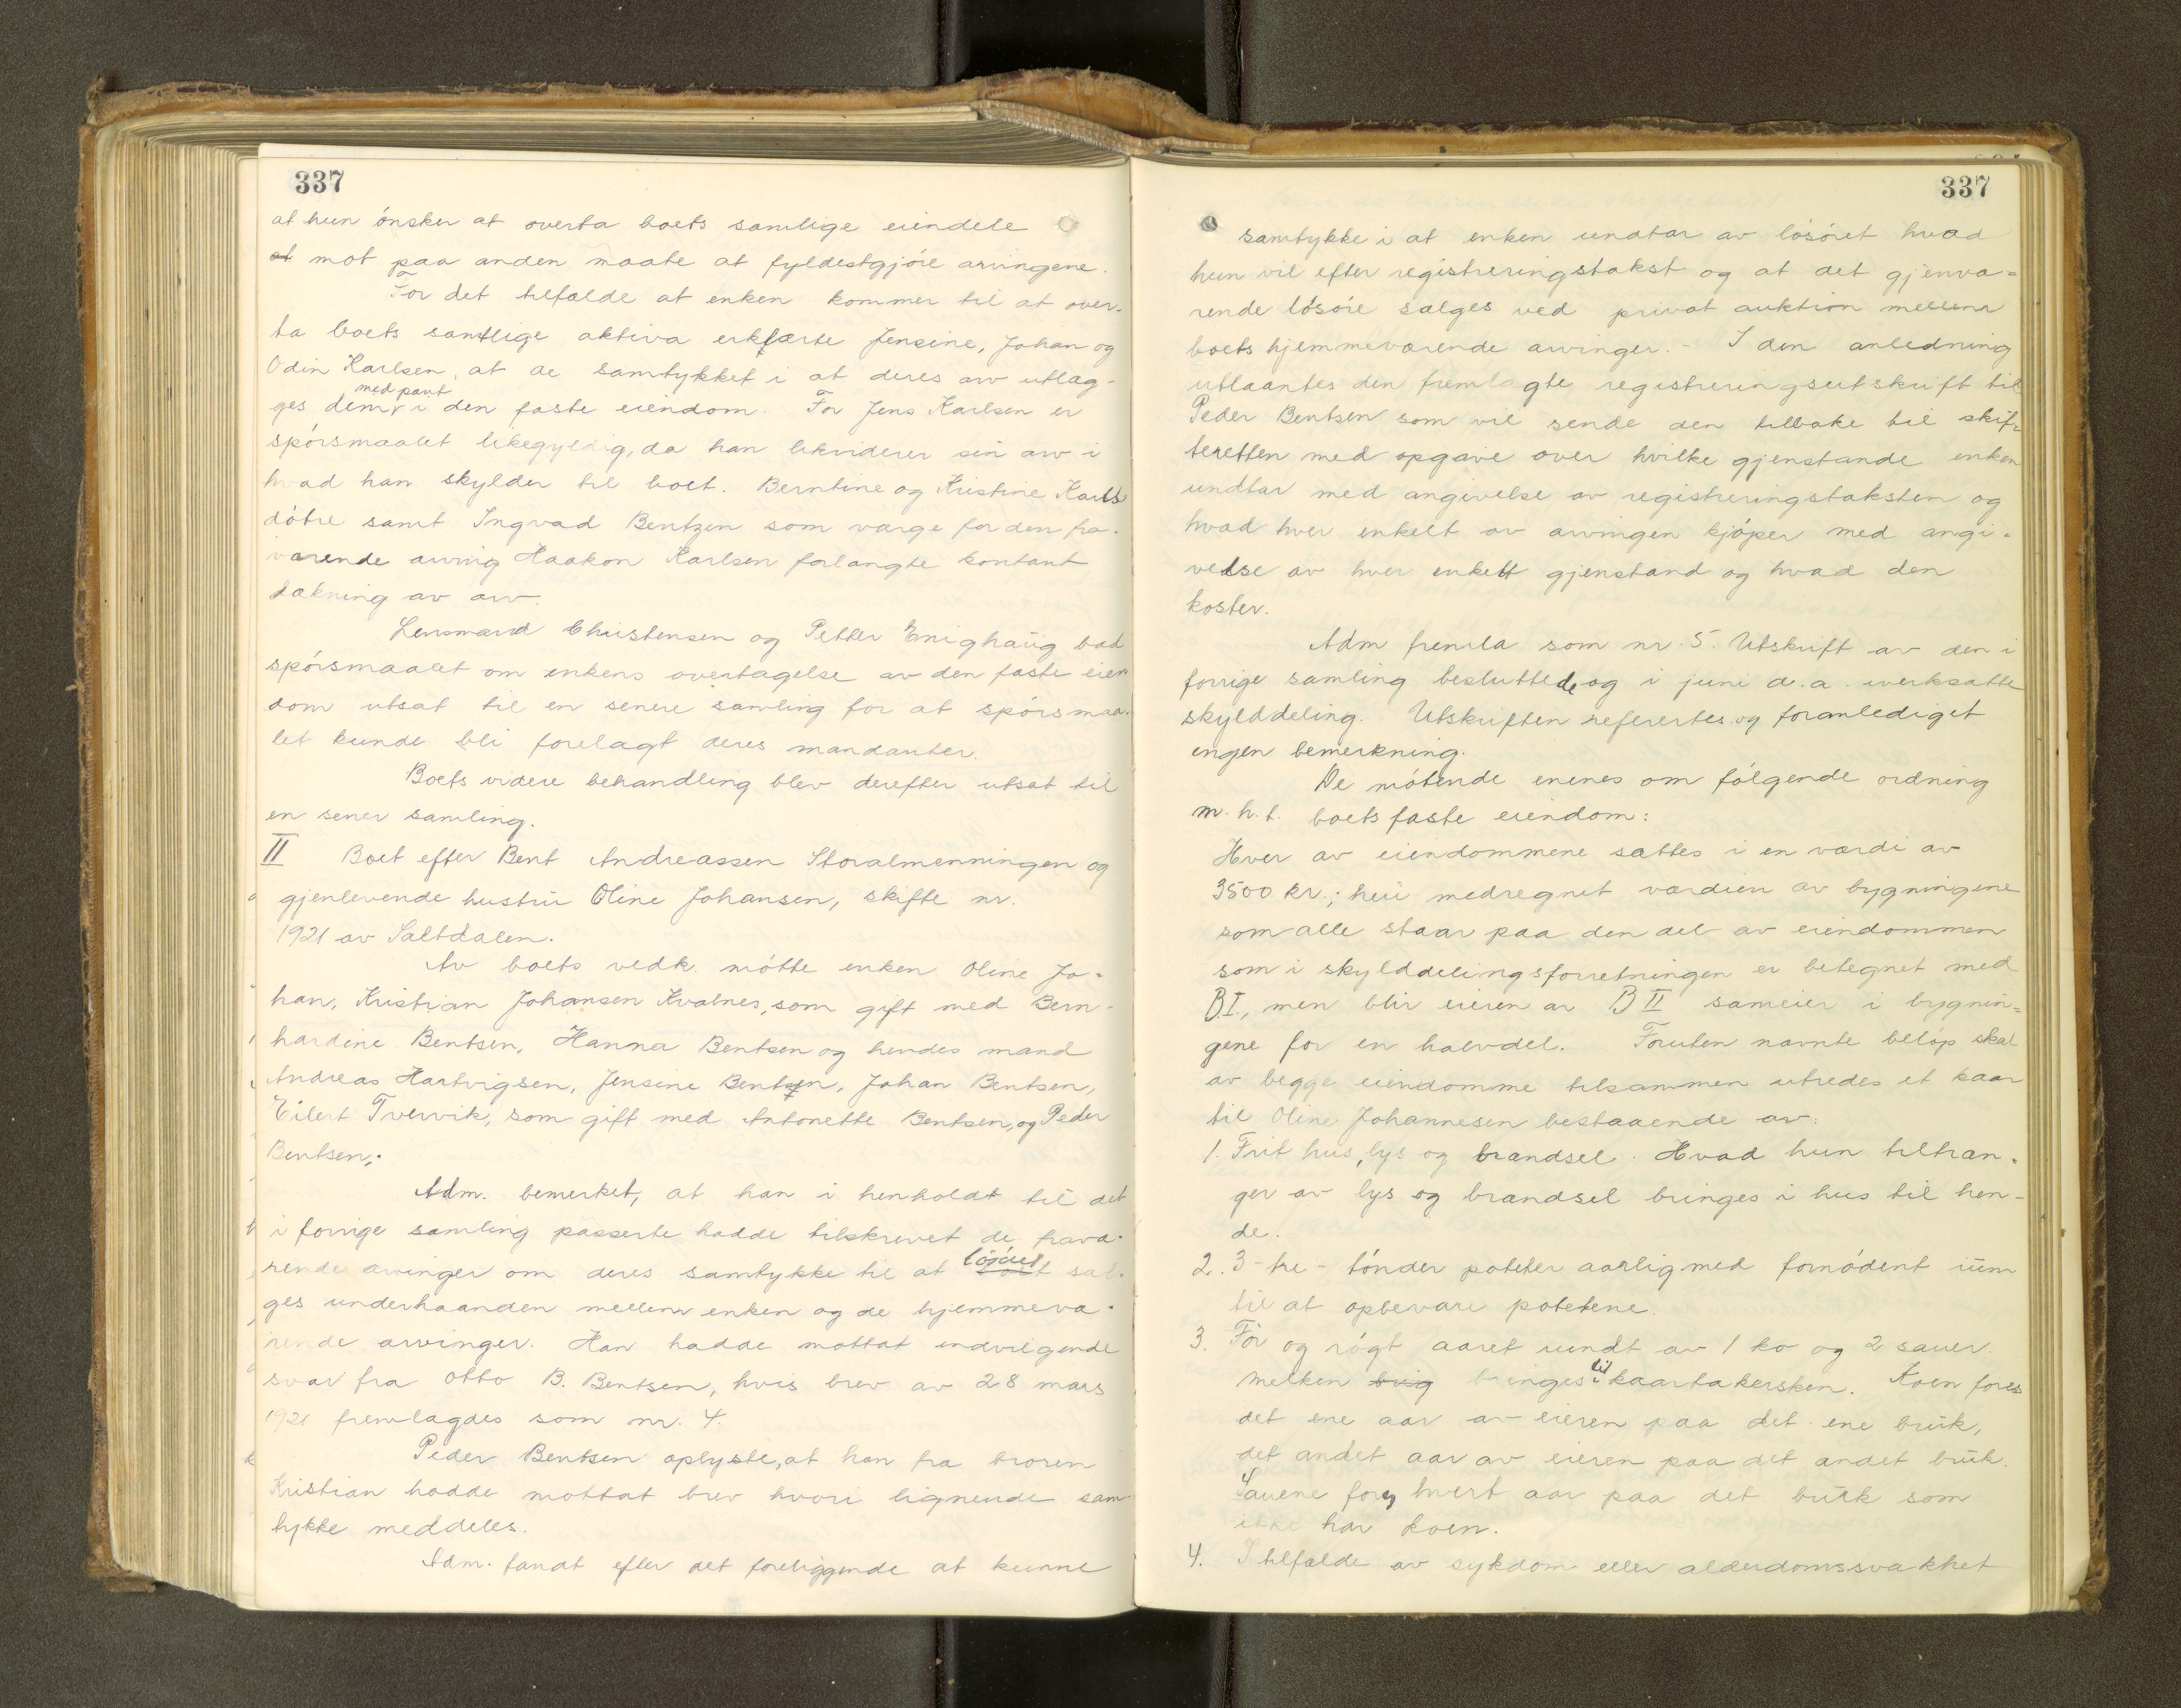 337
at hun ónsker at overta boets samlige eiendele
at mot paa anden maate at fyldestgjóre arvingene.
For det tilfælde at enken kommer til at over-
ta boets samtlige aktiva erklærte Jensine, Johan og
Odin Karlsen, at de samtykket i at deres arv utlæg-
ges dem med pant i den faste eiendom. For Jens Karlsen er
spórsmaalet likegyldig, da han likviderer sin arv i
hvad han skylder til boet. Berntine og Kristine Karls
dótre samt Ingvad Bentzen som værge for den fra-
værende arving Haakon Karlsen forlangte kontant
dækning av arv.
Lensmand Christensen og Petter Enighaug bad
spórsmaalet om enkens overtagelse av den faste eien
dom utsat til en senere samling for at spórsmaa-
let kunde bli forelagt deres mandanter.
Boets videre behandling blev derefter utsat til
en sener samling.
II Boet efter Bent Andreassen Storalmenningen og
gjenlevende hustru Oline Johansen, skifte nr.
1921 av Saltdalen.
Av boets vedk. mótte enken Oline Jo-
han, Kristian Johansen Kvalnes, som gift med Bern-
hardine Bentsen, Hanna Bentsen og hendes mand
Andreas Hartvigsen, Jensine Bentsen, Johan Bentsen,
Eilert Tvervik, som gift med Antonette Bentsen, og Peder
Bentsen;
Adm. bemerket, at han i henholdt til det
i forrige samling passerte hadde tilskrevet de fravæ-
rende arvinger om deres samtykke til at sæl-
ges underhaanden mellem enken og de hjemmevæ-
rende arvinger. Han hadde mottat indvilgende
svar fra Otto B. Bentsen, hvis brev av 28 mars
1921 fremlagdes som nr. 4.
Peder Bentsen oplyste, at han fra broren
Kristian hadde mottat brev hvori lignende sam-
tykke meddeles.
Adm. fandt efter det foreliggende at kunne
337
samtykke i at enken undtar av lósóret hvad
hun vil efter registreringstakst og at det gjenvæ-
rende lósóre sælges ved privat auktion mellem
boets hjemmeværende arvinger. - I den anledning
utlaantes den fremlagte registreringsutskrift til
Peder Bentsen som vil sende den tilbake til skif-
teretten med opgave over hvilke gjenstande enken
undtar med angivelse av registreringstaksten og
hvad hver enkelt av arvingen kjóper med angi-
velse av hver enkelt gjenstand og hvad den
koster.
Adm fremla som nr. 5. Utskrift av den i
forrige samling besluttede og i juni d.a. iverksatte
skylddeling. Utskriften referertes og foranlediget
ingen bemerkning.
De mótende enenes om fólgende ordning
m.h.t. boets faste eiendom:
Hver av eiendommene sættes i en værdi av
3500 kr.; heri medregnet værdien av bygningene
som alle staar paa den del av eiendommen
som i skylddelingsforretningen er betegnet med
B.I., men blir eieren av B II sameier i bygnin-
gene for en halvdel. Foruten nævnte belóp skal
av begge eiendomme tilsammen utredes et kaar
til Oline Johannesen bestaaende av:
1. Frit hus, lys og brændsel. Hvad hun tiltræn-
ger av lys og brændsel bringes i hus til hen-
de.
2. 3 - tre - tónder poteter aarlig med fornódent rum
til at opbevare potetene.
3. Fór og rógt aaret rundt av 1 ko og 2 sauer.
Melken brig bringes til kaartakersken. Koen fores
det ene aar av eieren paa det ene bruk,
det andet aar av eieren paa det andet bruk.
Sauene fores hvert aar paa det bruk som
ikke har koen.
4. I tilfælde av sykdom eller alderdomssvakhet